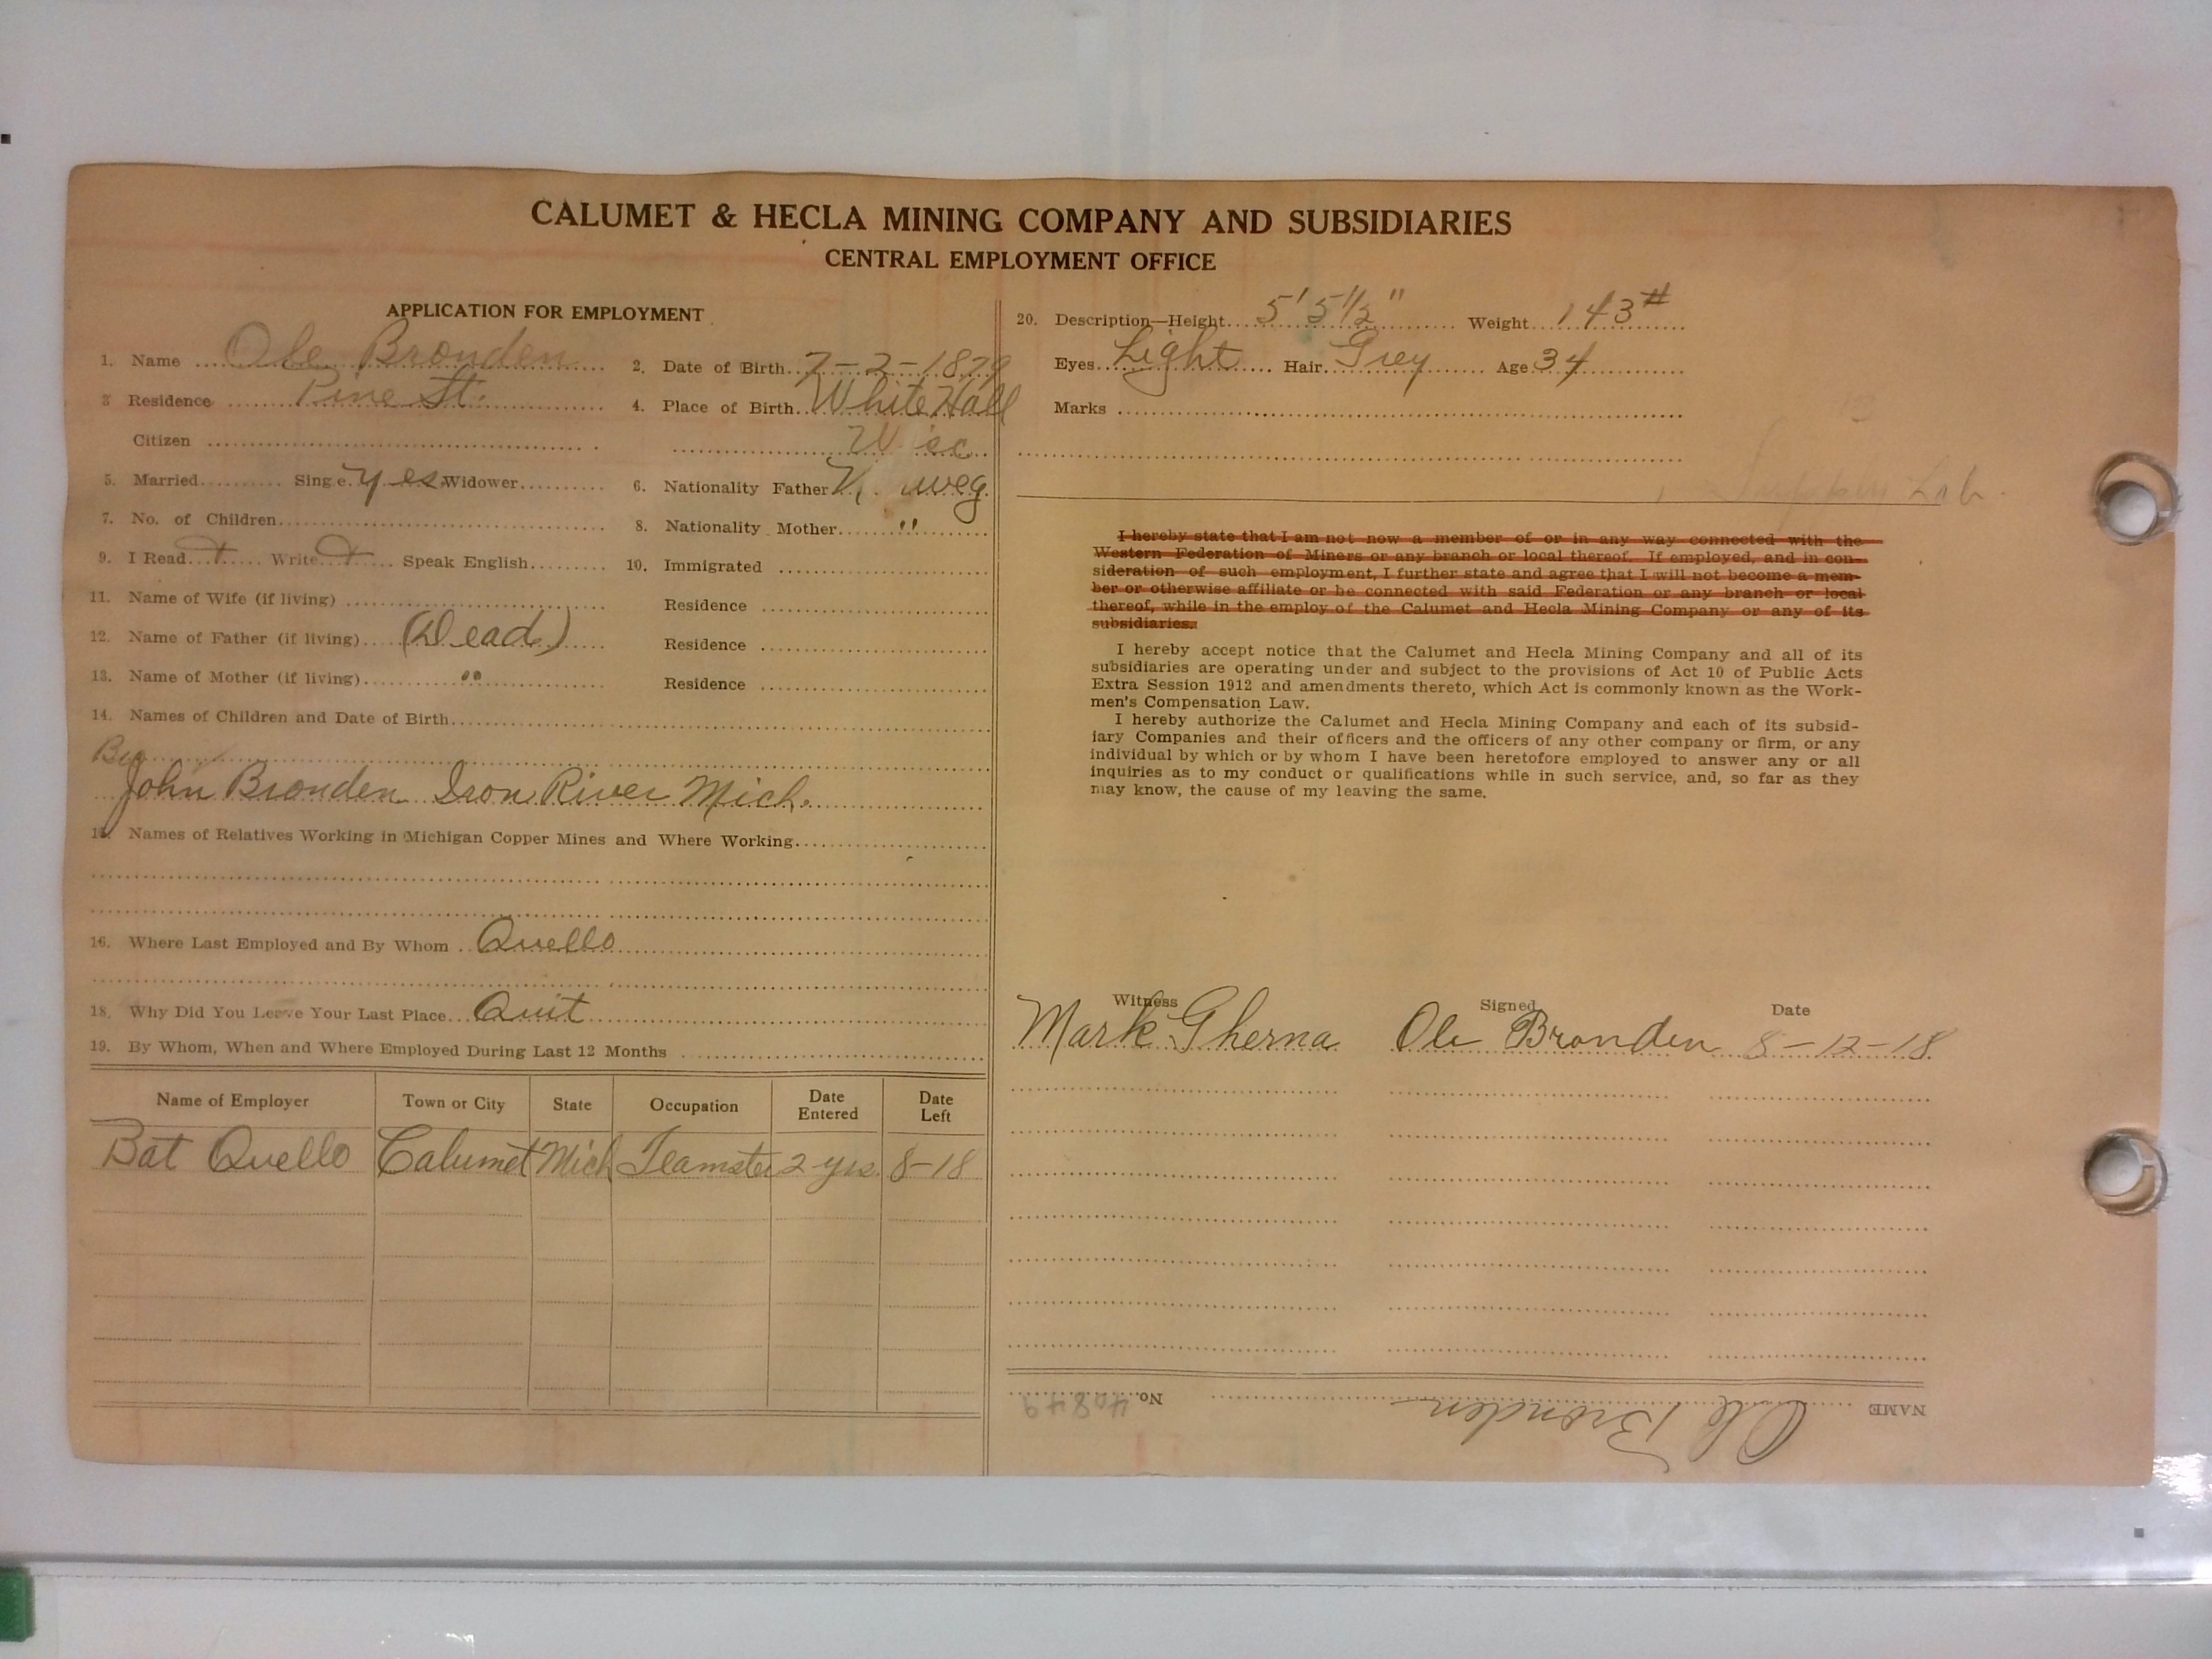 CALUMET & HECLA MINING COMPANY AND SUBSIDIARIES
CENTRAL EMPLOYMENT OFFICE
APPLICATION FOR EMPLOYMENT
1. Name Ole Bronden 2. Date of Birth 7-2-1879
3 Residence Pine St. 4. Place of Birth White Hall
Citizen Wisc
5. Married Single Yes Widower 6. Nationality Father
7. No. of Children 8. Nationality Mother "
9. I Read + Write + Speak English 10. Immigrated
11. Name of Wife (if living) Residence
12. Name of Father (if living) (Dead) Residence
13. Name of Mother (if living) " Residence
14. Names of Children and Date of Birth
Bro
John Bronden Iron River Mich.
15. Names of Relatives Working in Michigan Copper Mines and Where Working
16. Where Last Employed and By Whom Quello
18. Why Did You Leave Your Last Place Quit
19. By Whom, When and Where Employed During Last 12 Months
Name of Employer Town or City State Occupation Date Entered Date Left
Bat Quello Calumet Mich Teamster 2 yrs. 8-18
20. Description—Height 5' 5 1/2" Weight 143#
Eyes Light Hair Grey Age 34
Marks
Lab.
I hereby state that I am not now a member of or in any way connected with the
Western Federation of Miners or any branch or local thereof. If employed, and in con-
sideration of such employment, I further state and agree that I will not become a mem-
ber or otherwise affiliate or be connected with said Federation or any branch or local
thereof, while in the employ of the Calumet and Hecla Mining Company or any of its
subsidiaries.
I hereby accept notice that the Calumet and Hecla Mining Company and all of its
subsidiaries are operating under and subject to the provisions of Act 10 of Public Acts
Extra Session 1912 and amendments thereto, which Act is commonly known as the Work-
men's Compensation Law.
I hereby authorize the Calumet and Hecla Mining Company and each of its subsid-
iary Companies and their officers and the officers of any other company or firm, or any
individual by which or by whom I have been heretofore employed to answer any or all
inquiries as to my conduct or qualifications while in such service, and, so far as they
may know, the cause of my leaving the same.
Witness Signed Date
Mark Gherna Ole Bronden 8-12-18
NAME Ole Bronden No. 40849